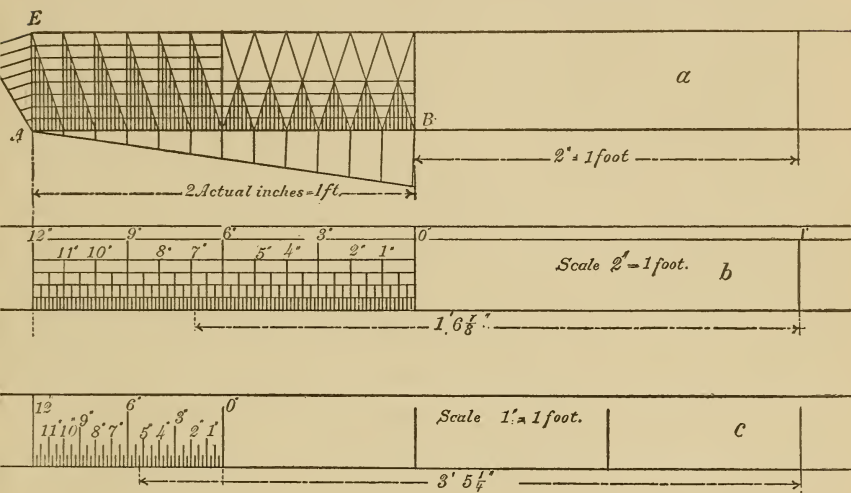 E
a
A
B
2" = 1 foot
2 Actual inches = 1 ft.
12" 9" 6" 3" 0" 1'
11" 10" 8" 7" 5" 4" 2" 1"
Scale 2" = 1 foot. b
1' 6 7/8"
12" 6" 0"
9" 3"
11" 10" 8" 7" 5" 4" 2" 1"
Scale 1" = 1 foot. c
3' 5 1/4"